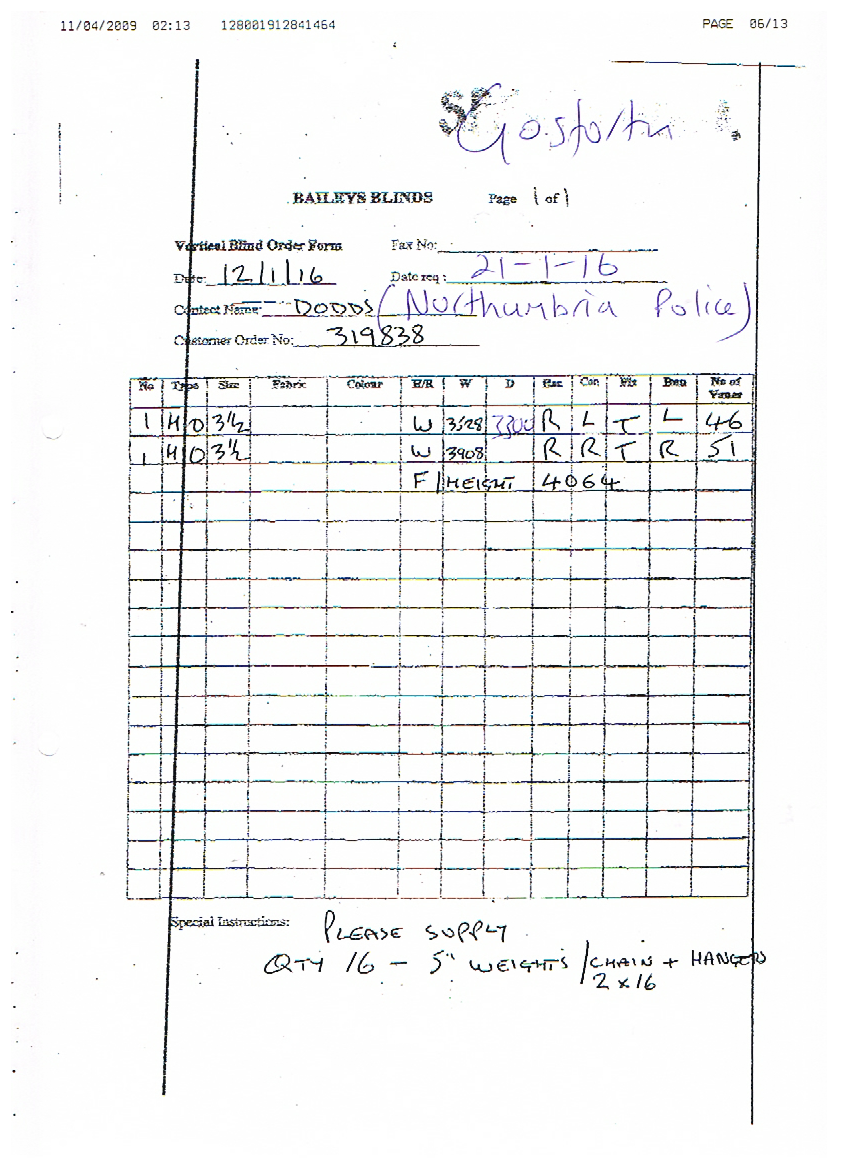 11/04/2009 02:13 128001912841464 PAGE 06/13
BAILEYS BLINDS Page 1 of 1
Vertical Blind Order Form Fax No:
Date: 12/1/16 Date req: 21-1-16
Contact Name: DODDS (Northumbria Police)
Customer Order No: 319838
No Type Size Fabric Colour E/R W D Con No of Vanes
1 HO 3½ W 3528 3300 R L T L 46
1 HO 3½ W 3908 R R T R 51
F/HEIGHT 4064
Special Instructions: PLEASE SUPPLY
QTY 16 - 5" WEIGHTS / CHAIN + HANGERS
2 x 16